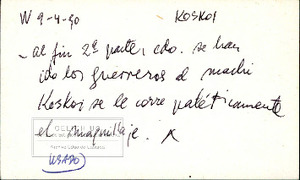 W 9-4-90 KOSKOI
- al fin 2ª parte, cdo. se han
ido los guerreros de
Koskoi se le corre patéticamente
el maquillaje.
USADO